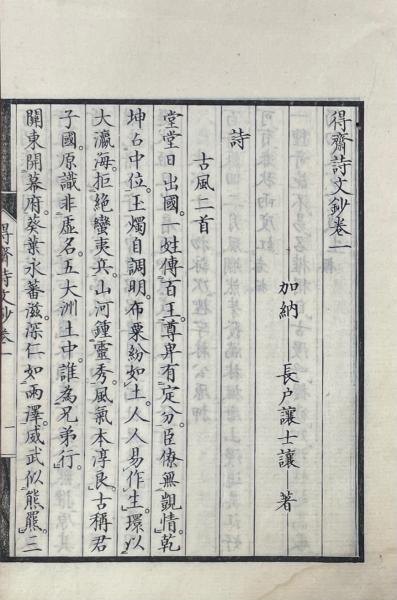 得齋詩文鈔卷一
加納 長戶讓士讓 著
詩
古風二首
堂堂日出國。一姓傳百王。尊卑有定分。臣僚無覬情。乾
坤占中位。玉燭自調明。布粟紛如土。人人易作生。環以
大瀛海。拒絕蠻夷兵。山河鍾靈秀。風氣本淳良。古稱君
子國。原識非虛名。五大洲土中。誰為兄弟行。
關東開幕府。葵葉永蕃滋。深仁如雨澤。威武似熊羆。三
得齋詩文鈔卷一
一